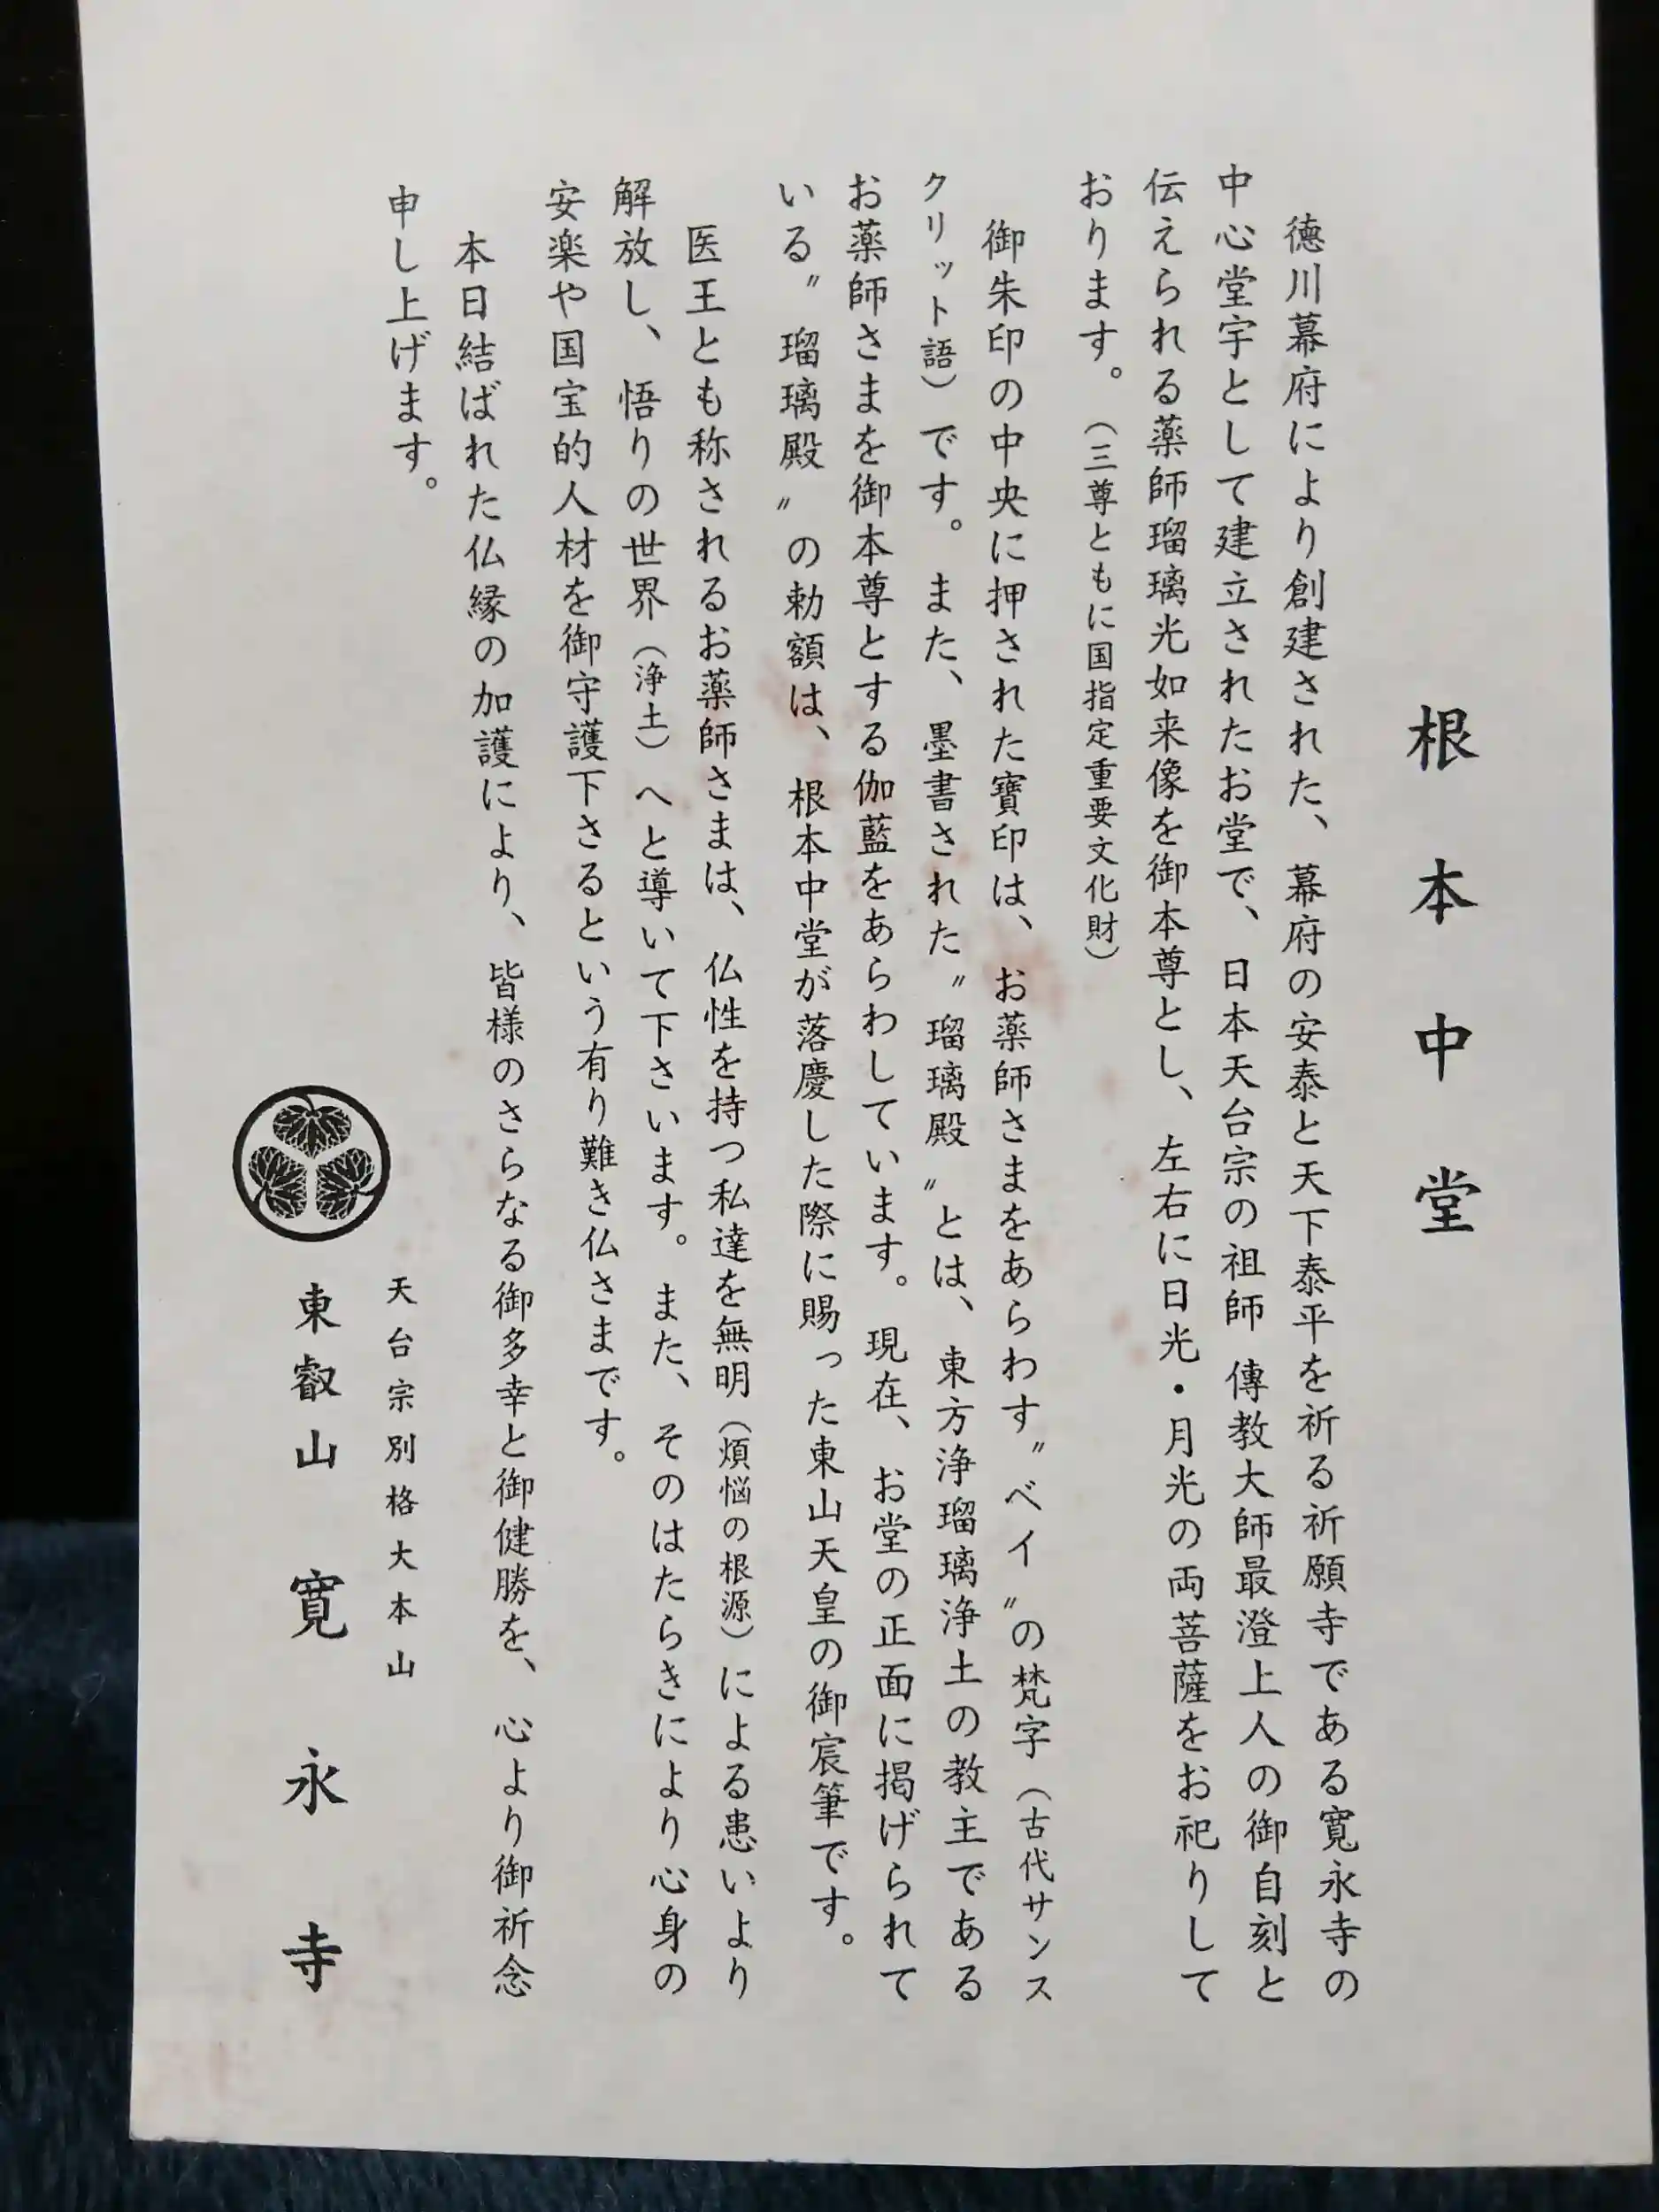 根本中堂
徳川幕府により創建された、幕府の安泰と天下泰平を祈る祈願寺である寛永寺の
中心堂宇として建立されたお堂で、日本天台宗の祖師 傳教大師最澄上人の御自刻と
伝えられる薬師瑠璃光如来像を御本尊とし、左右に日光・月光の両菩薩をお祀りして
おります。（三尊ともに国指定重要文化財）
御朱印の中央に押された寶印は、お薬師さまをあらわす〝ベイ〟の梵字（古代サンス
クリット語）です。また、墨書された〝瑠璃殿〟とは、東方浄瑠璃浄土の教主である
お薬師さまを御本尊とする伽藍をあらわしています。現在、お堂の正面に掲げられて
いる〝瑠璃殿〟の勅額は、根本中堂が落慶した際に賜った東山天皇の御宸筆です。
医王とも称されるお薬師さまは、仏性を持つ私達を無明（煩悩の根源）による患いより
解放し、悟りの世界（浄土）へと導いて下さいます。また、そのはたらきにより心身の
安楽や国宝的人材を御守護下さるという有り難き仏さまです。
本日結ばれた仏縁の加護により、皆様のさらなる御多幸と御健勝を、心より御祈念
申し上げます。
天台宗別格大本山
東叡山 寛永寺